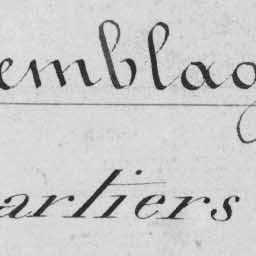 emblag
artiers